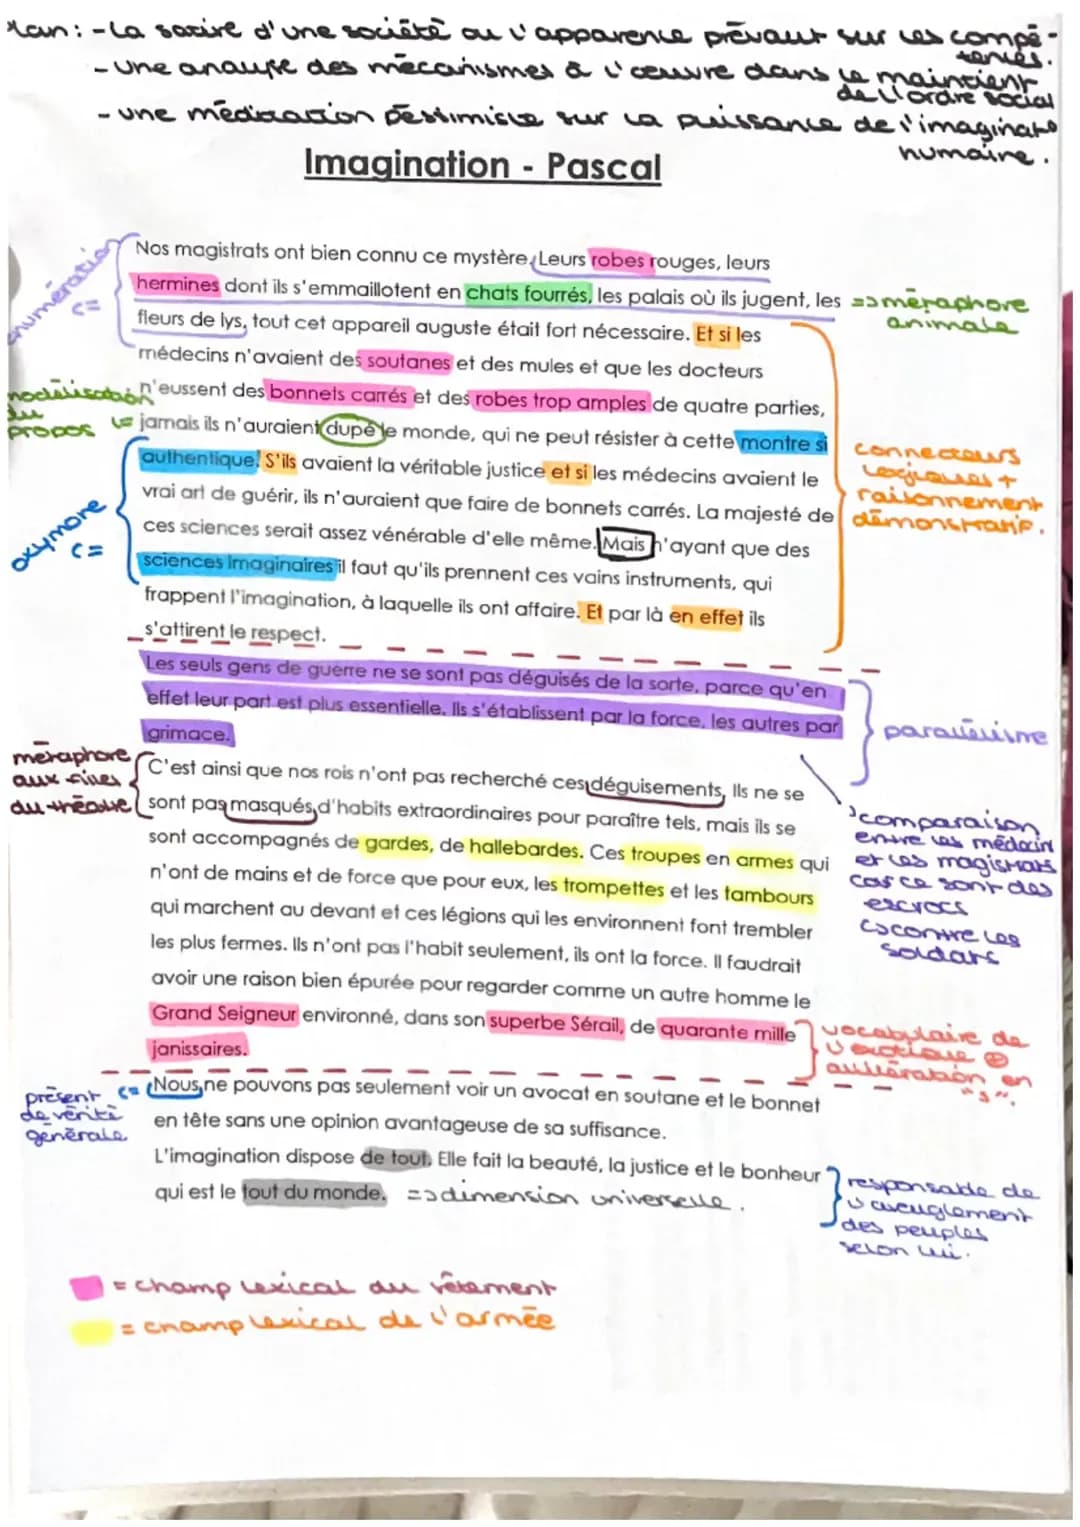 Plan : - La satire d'une société ou l'apparence prévaut sur les compé-
tences.
- une analyse des mécanismes à l'œuvre dans le maintient
de l'ordre social
- une méditation pessimiste sur la puissance de l'imaginat°
humaine.
Imagination - Pascal
énumération
<=
Nos magistrats ont bien connu ce mystère. Leurs robes rouges, leurs
hermines dont ils s'emmaillotent en chats fourrés, les palais où ils jugent, les => métaphore
animale
fleurs de lys, tout cet appareil auguste était fort nécessaire. Et si les
médecins n'avaient des soutanes et des mules et que les docteurs
modélisation
du
propos <=
n'eussent des bonnets carrés et des robes trop amples de quatre parties,
jamais ils n'auraient dupé le monde, qui ne peut résister à cette montre si
authentique. S'ils avaient la véritable justice et si les médecins avaient le
vrai art de guérir, ils n'auraient que faire de bonnets carrés. La majesté de
connecteurs
logiques +
raisonnement
démonstratif.
oxymore
<=
ces sciences serait assez vénérable d'elle même. Mais n'ayant que des
sciences imaginaires il faut qu'ils prennent ces vains instruments, qui
frappent l'imagination, à laquelle ils ont affaire. Et par là en effet ils
s'attirent le respect.
Les seuls gens de guerre ne se sont pas déguisés de la sorte, parce qu'en
effet leur part est plus essentielle. Ils s'établissent par la force, les autres par
grimace.
parallélisme
métaphore
aux files
du théâtre
C'est ainsi que nos rois n'ont pas recherché ces déguisements. Ils ne se
sont pas masqués d'habits extraordinaires pour paraître tels, mais ils se
sont accompagnés de gardes, de hallebardes. Ces troupes en armes qui
n'ont de mains et de force que pour eux, les trompettes et les tambours
qui marchent au devant et ces légions qui les environnent font trembler
les plus fermes. Ils n'ont pas l'habit seulement, ils ont la force. Il faudrait
avoir une raison bien épurée pour regarder comme un autre homme le
Grand Seigneur environné, dans son superbe Sérail, de quarante mille
janissaires.
comparaison
entre les médecin
et les magistrats
car ce sont des
escrocs
contre les
soldats
vocabulaire de
l'exotique +
allitération en
"s".
présent <=
de vérité
générale
Nous ne pouvons pas seulement voir un avocat en soutane et le bonnet
en tête sans une opinion avantageuse de sa suffisance.
L'imagination dispose de tout. Elle fait la beauté, la justice et le bonheur
qui est le tout du monde. => dimension universelle.
responsable de
l'aveuglement
des peuples
selon lui.
= champ lexical du vêtement
= champ lexical de l'armée